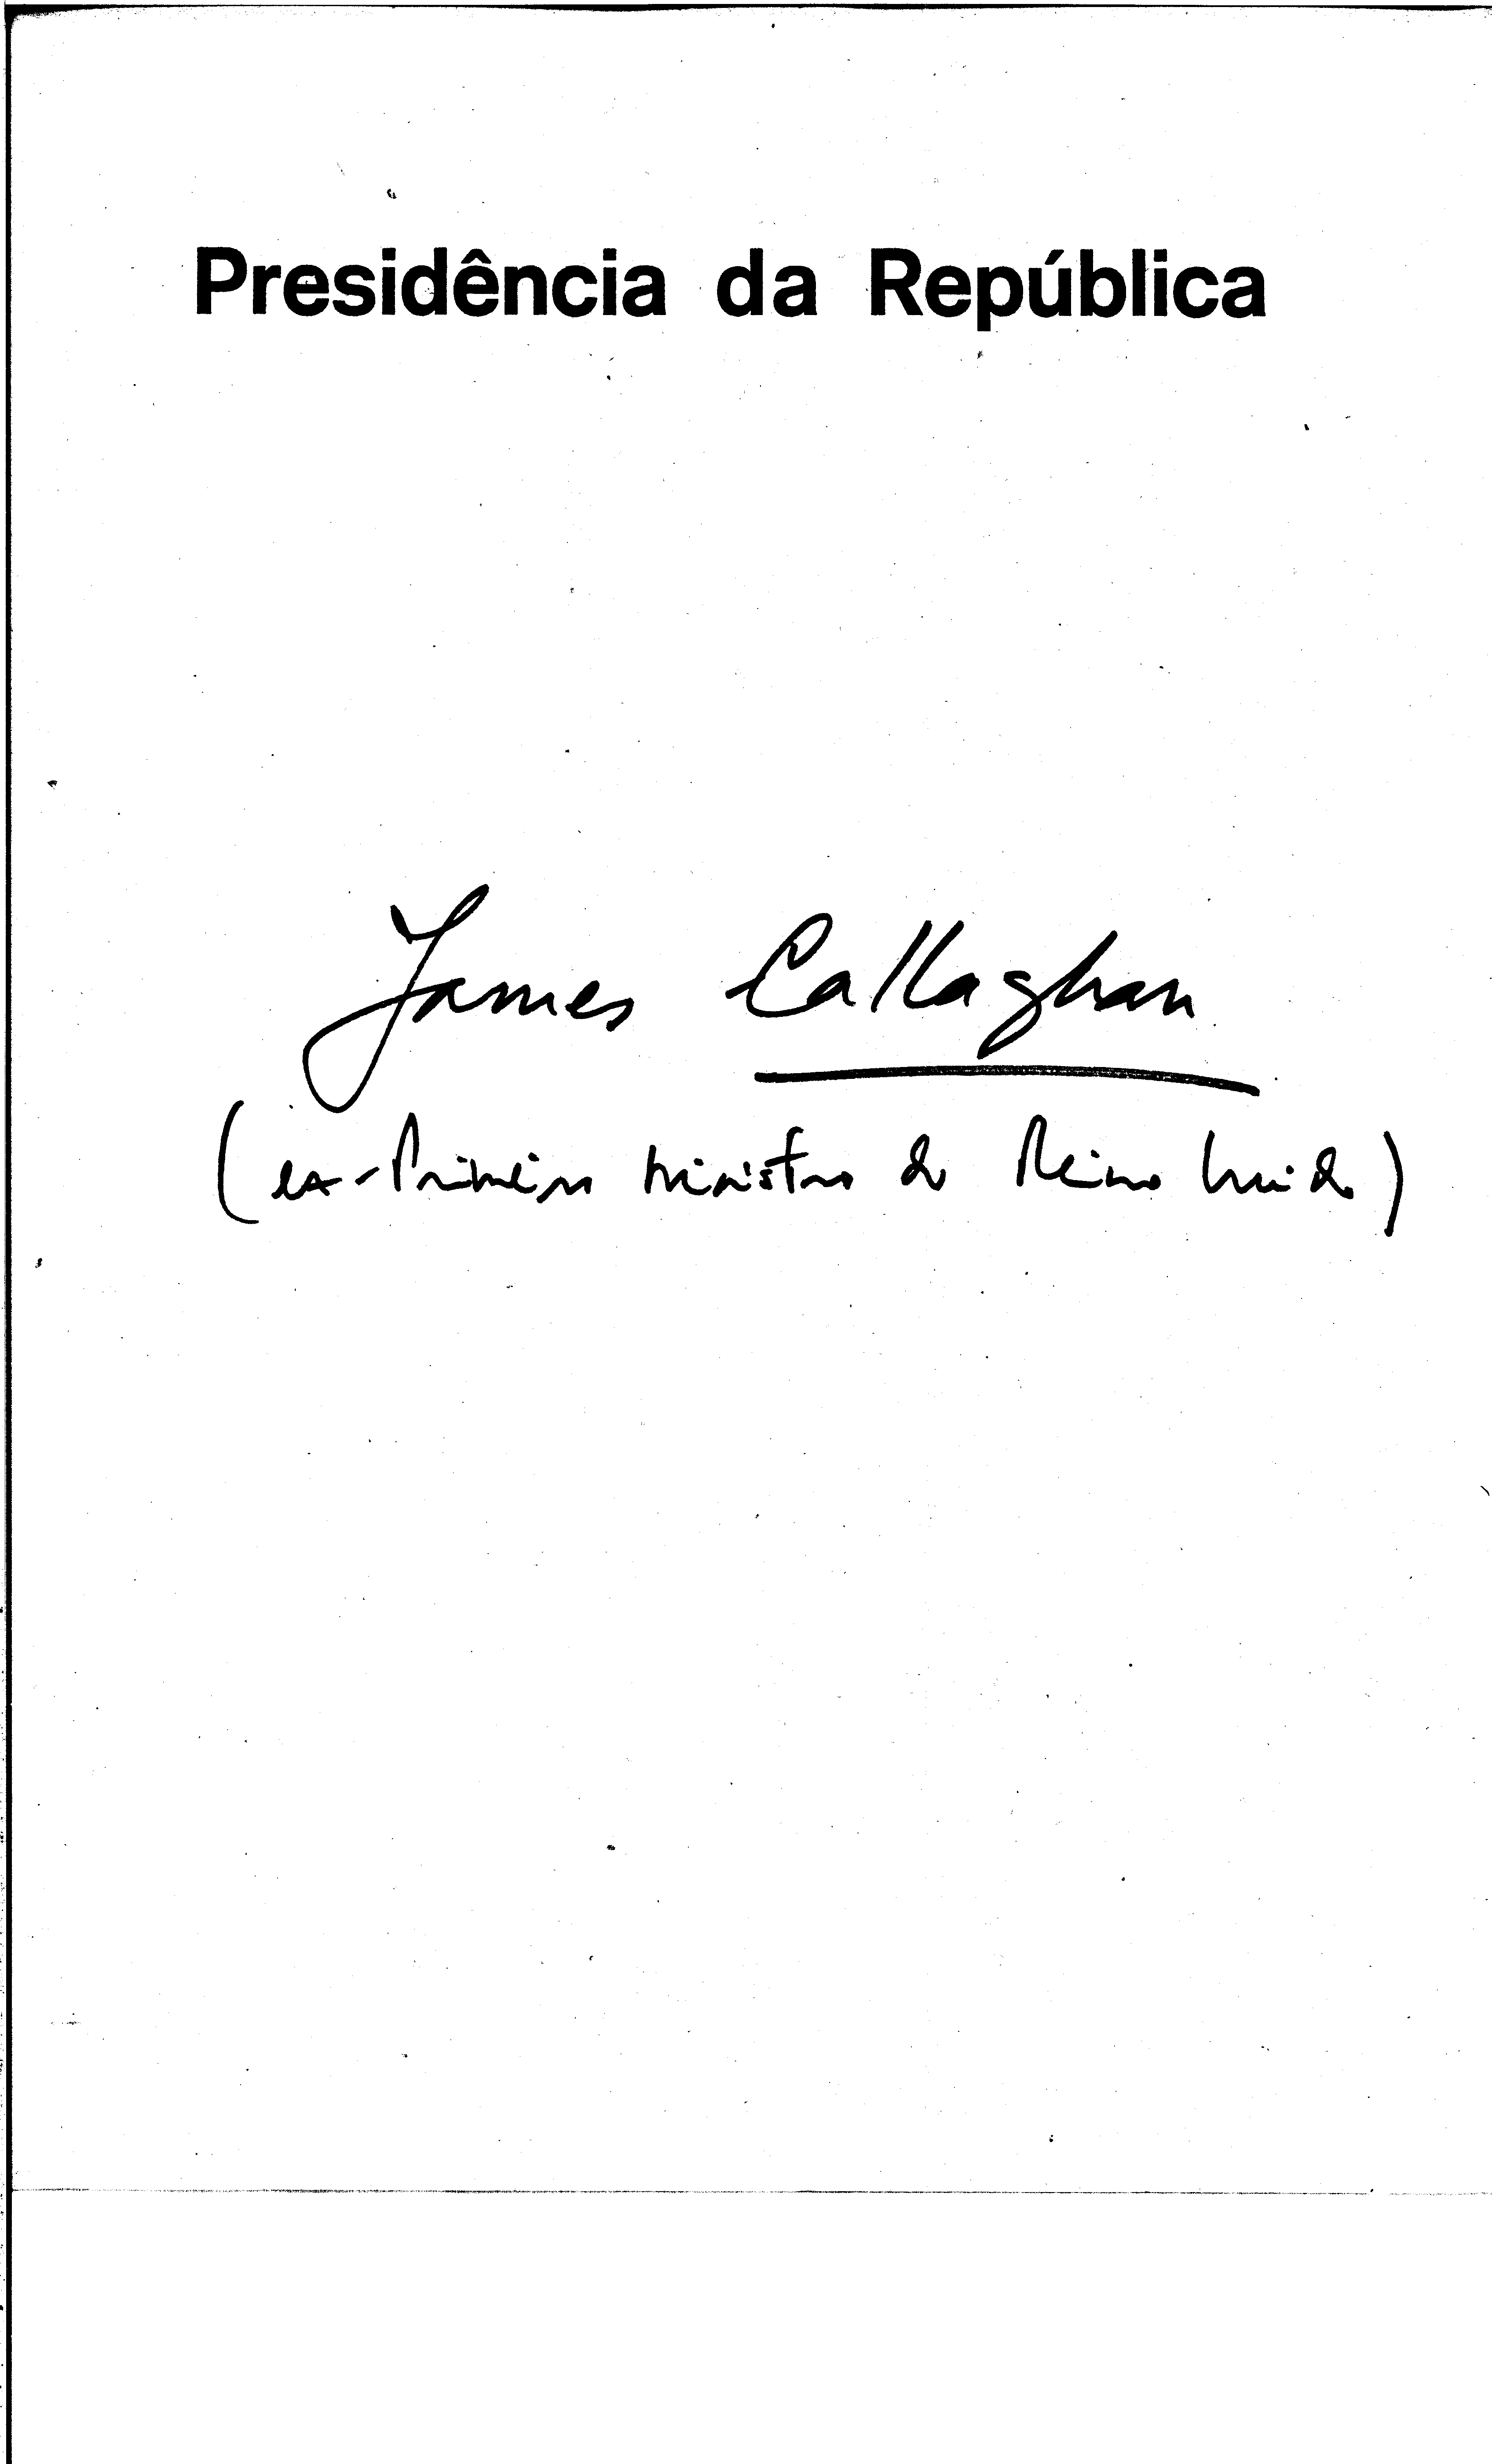 Presidência da República
James Callaghan
(ex-Primeiro Ministro do Reino Unido)